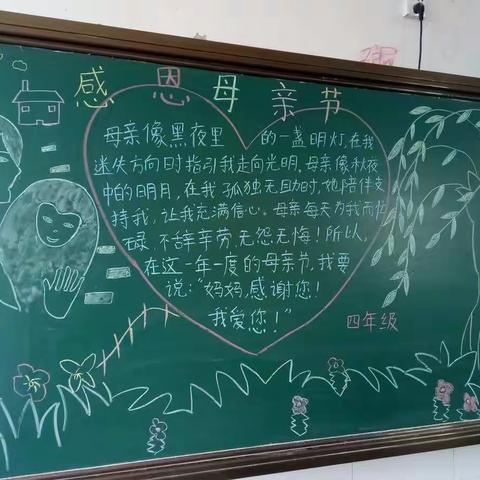 感恩母亲节
母亲像黑夜里 的一盏明灯,在我
迷失方向时指引我走向光明。母亲像秋夜
中的明月,在我孤独无助时,她陪伴支
持我,让我充满信心。母亲每天为我而忙
碌,不辞辛劳,无怨无悔!所以,
在这一年一度的母亲节,我要
说:“妈妈,感谢您!
我爱您!”
四年级